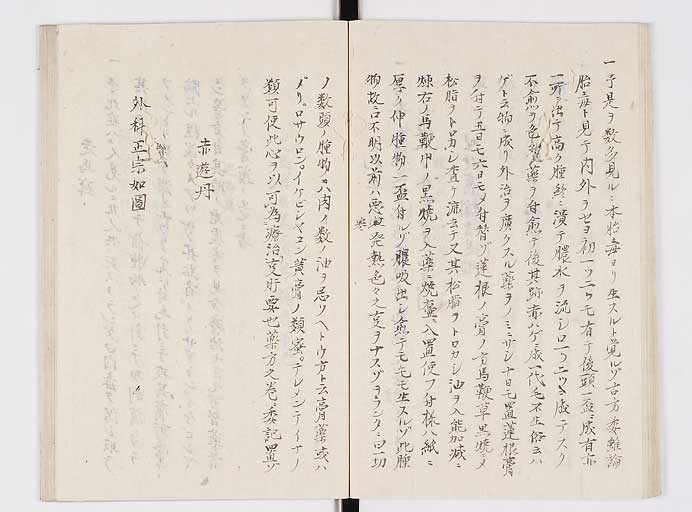 一予是ヲ数多見ルニ本胎毒ヨリ生スルト覚ルゾ古方委雖論
胎毒ト見テ内外ヲセヨ初一ツニツモ有テ後頭一盃ニ成有亦
一所ニ出テ高ク腫終ニ潰テ膿水ヲ流シロ一ツニツ成テスク
不愈ヲ色薬ヲ付愈テ後其跡赤ハゲニ成一代毛不生俗ニハ
ゲト云物ニ成リ外治ヲ廣クスル薬ヲノミニサシ十日モ置蓮根膏
ヲ付テ五日モ六日モメ付替ゾ蓮根ノ膏ノ方馬鞭草黒焼ニメ
松脂ヲトロカシ渣ヲ漉去テ又其松脂ヲトロカシ油ヲ入能加減ニ
煉右ノ馬鞭中ノ黒焼ヲ入薬ニ焼盃ニ入置使フ付様ハ紙ニ
厚ク伸腫物一盃付ルゾ膿吸出シ愈テモモモ生スルゾ此腫
物故ニ不明以前ハ悪寒発熱色々之変ヲナスゾヲランタニ曰一切
ノ数頭ノ腫物ニハ肉ノ数ノ油ヲ忌ツヘトウ方ト云膏薬或ハ
メリ。ロサウロン。イケビシヤコン黄膏ノ類蜜。テレメンテイナノ
類可使此心ヲ以可為療治ノ変肝要也薬方之巻ニ委記置ゾ
赤遊丹
外科正宗如圖